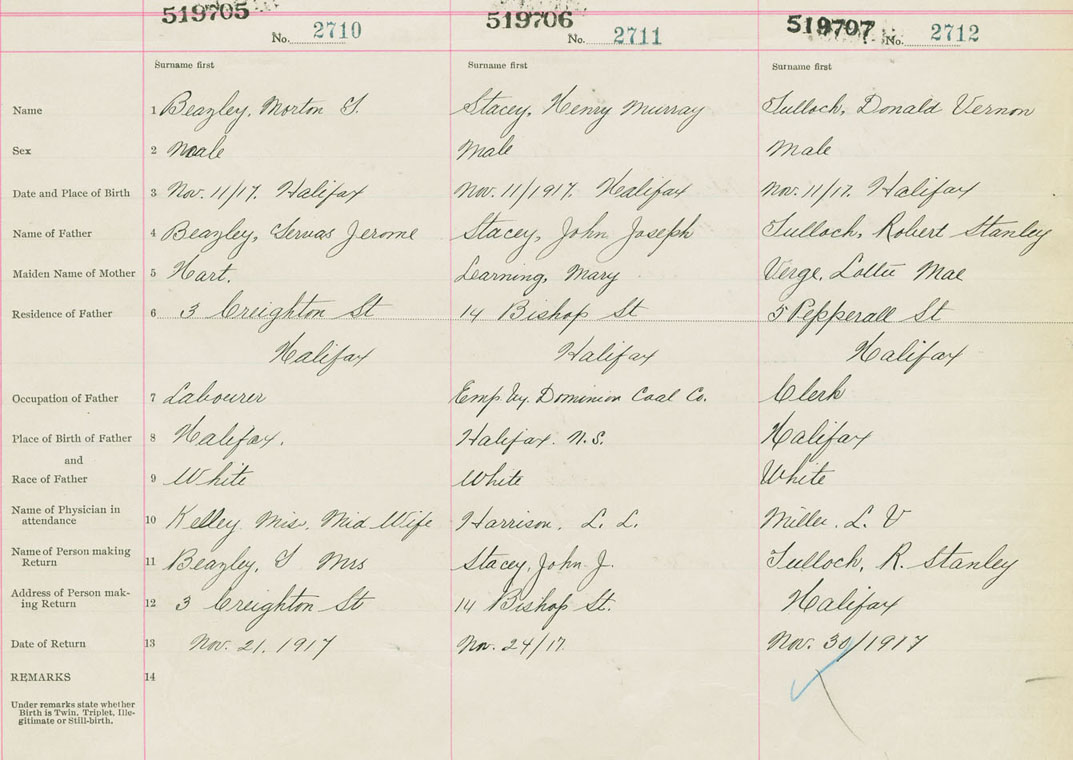 519705 519706 519707
No. 2710 No. 2711 No. 2712
Surname first Surname first Surname first
Name 1 Beazley, Morton S. Stacey, Henry Murray Tulloch, Donald Vernon
Sex 2 Male Male Male
Date and Place of Birth 3 Nov. 11/17. Halifax Nov. 11/1917. Halifax Nov. 11/17. Halifax
Name of Father 4 Beazley, Servas Jerome Stacey, John Joseph Tulloch, Robert Stanley
Maiden Name of Mother 5 Hart. Learning, Mary Verge, Lottie Mae
Residence of Father 6 3 Creighton St 14 Bishop St 5 Pepperall St
Halifax Halifax Halifax
Occupation of Father 7 Labourer Emp by. Dominion Coal Co. Clerk
Place of Birth of Father 8 Halifax. Halifax. N.S. Halifax
and
Race of Father 9 White White White
Name of Physician in
attendance 10 Kelley, Mis, Mid Wife Harrison, L. L. Miller, L. V
Name of Person making
Return 11 Beazley, S Mrs Stacey, John J. Tulloch, R. Stanley
Address of Person mak-
ing Return 12 3 Creighton St 14 Bishop St. Halifax
Date of Return 13 Nov. 21. 1917 Nov. 24/17. Nov. 30/1917
REMARKS 14
Under remarks state whether
Birth is Twin, Triplet, Ille-
gitimate or Still-birth.